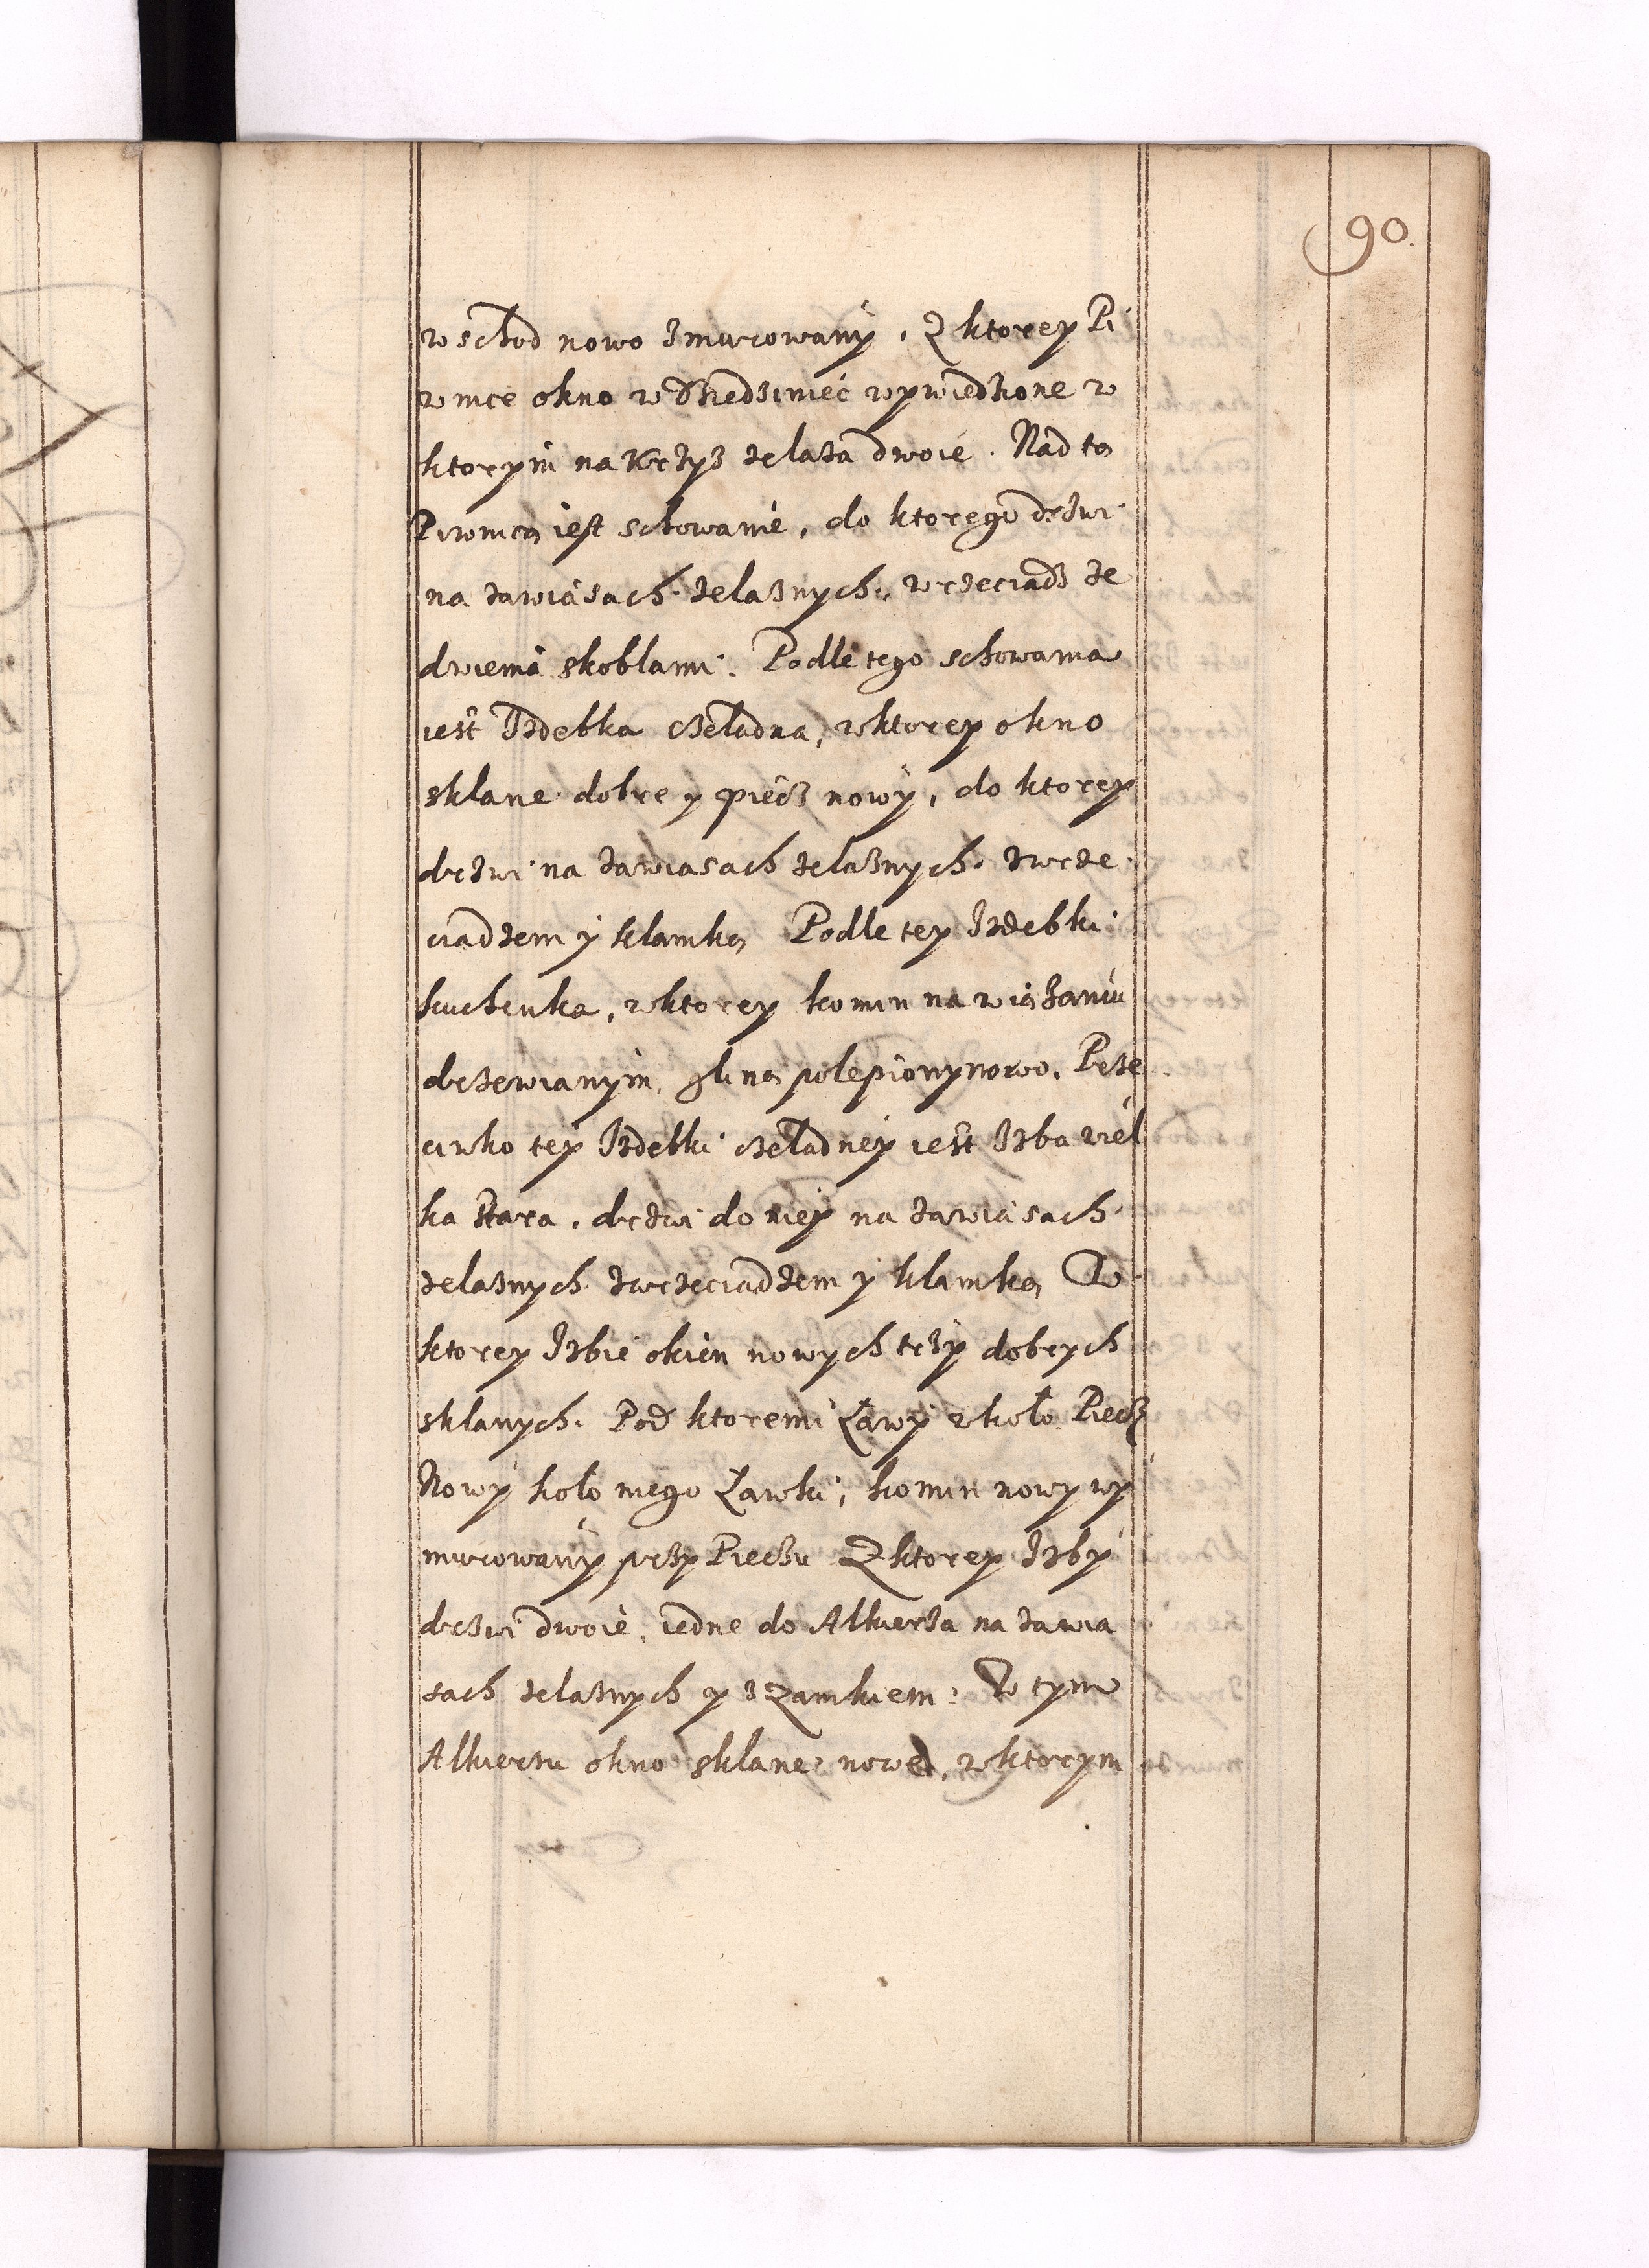 90.
wschod nowo zmurowany, Z ktorey Pi
wnice okno w dziedziniec wywiedzione w
ktorym na Krzyż żelaza dwoie. Nad tą
Piwnicą iest schowanie, do ktorego drzwi
na zawiasach żelaznych, wrzeciądz ze
dwiema skoblami. Podle tego schowania
iest Izdebka czeladna, w ktorey okno
sklane dobre y piecz nowy, do ktorey
drzwi na zawiasach żelaznych z wrze
ciadzem y klamką Podle tey Izdebki
kuchenka, w ktorey komin na wiązaniu
drzewianym, gliną polepiony nowo. Prze
ciwko tey Izdebki czeladney iest Izba wiel
ka stara, drzwi do niey na zawiasach
żelaznych z wrzeciądzem y klamką W
ktorey Izbie okien nowych trzy dobrych
sklanych. Pod ktoremi Ławy wkoło Piecz
Nowy koło niego Ławki, komin nowy wy
murowany przy Pieczu Z ktorey Izby
drzwi dwoie, iedne do Alkierza na zawia
sach żelaznych y z Zamkiem. W tym
Alkierzu okno sklane nowe, w ktorym